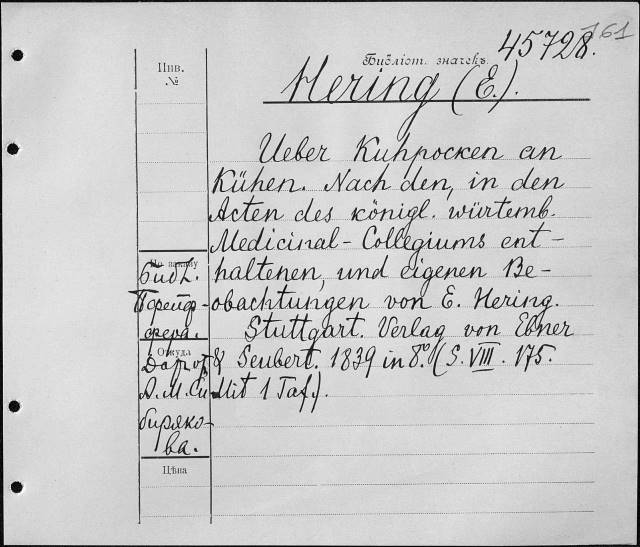 161
45728.
Библіот. значекъ.
Инв.
№
Hering (E.).
Ueber Kuhpocken an
Kühen. Nach den, in den
Acten des königl. würtemb.
Medicinal-Collegiums ent-
haltenen, und eigenen Be-
obachtungen von E. Hering.
Stuttgart. Verlag von Ebner
& Seubert. 1839 in 8º. (S. VIII. 175.
Mit 1 Taf.).
По какому
Библ.
Порейф-
фера.
Откуда
Даръ отъ
А. М. Си-
биряко-
ва.
Цѣна